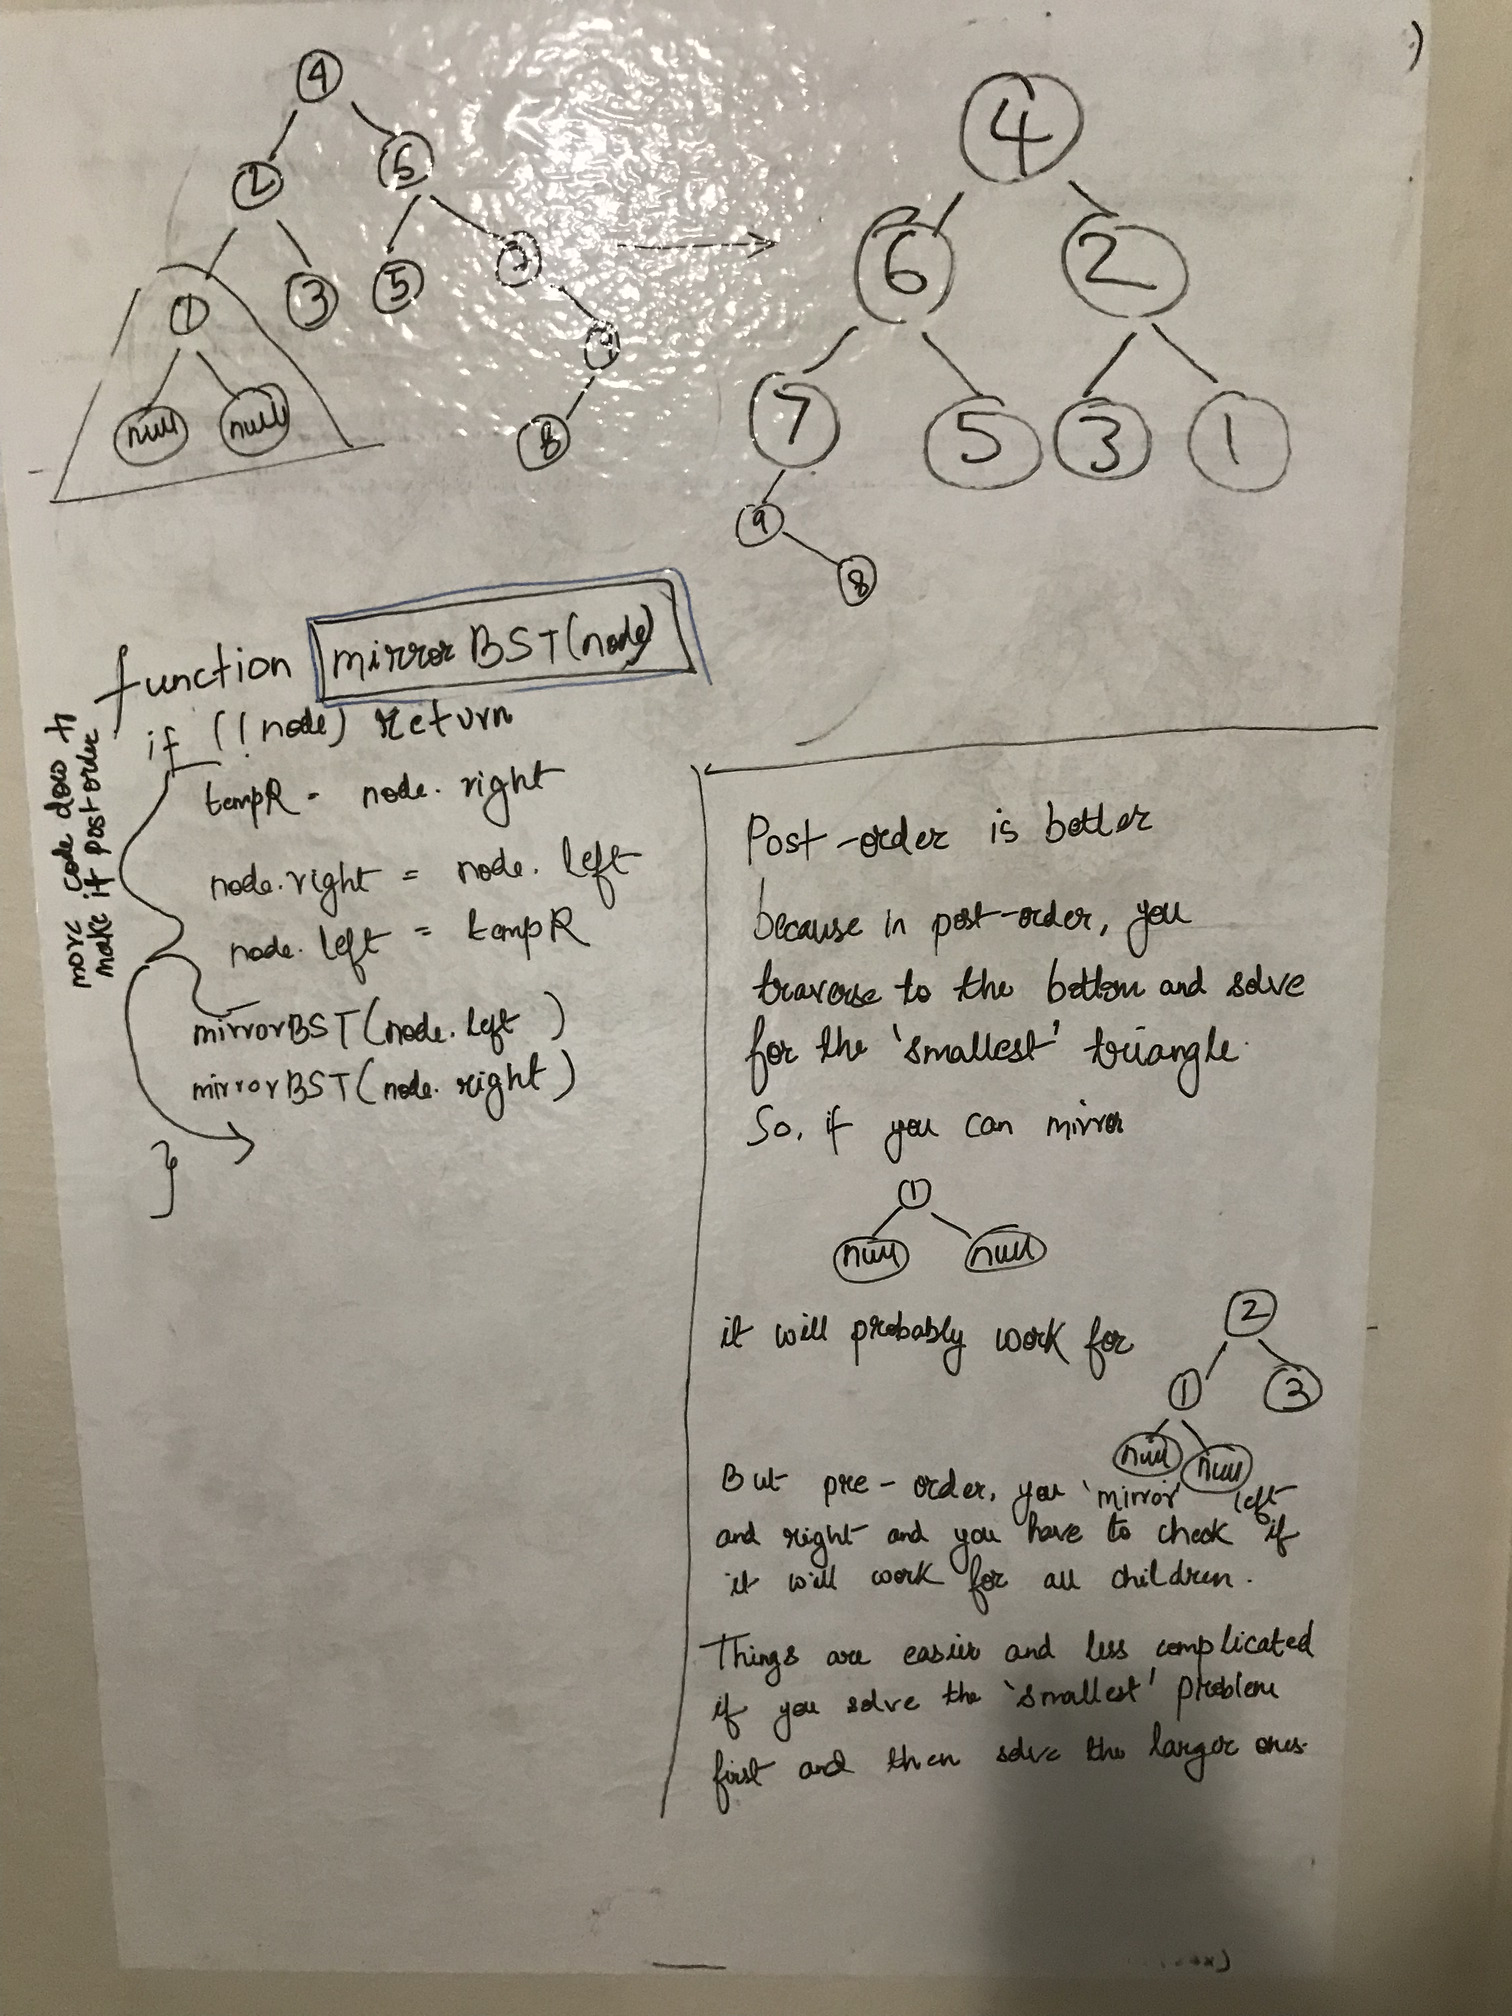 4
2 6
1 3 5 7
null null 9
8
4
6 2
7 5 3 1
9
8
function mirrorBST(node)
if (!node) return
tempR = node.right
node.right = node.left
node.left = tempR
mirrorBST(node.left)
mirrorBST(node.right)
}
move code down to
make it post order
Post-order is better
because in post-order, you
traverse to the bottom and solve
for the 'smallest' triangle.
So, if you can mirror
1
null null
it will probably work for
2
1 3
null null
But pre-order, you 'mirror' left
and right and you have to check if
it will work for all children.
Things are easier and less complicated
if you solve the 'smallest' problem
first and then solve the larger ones.